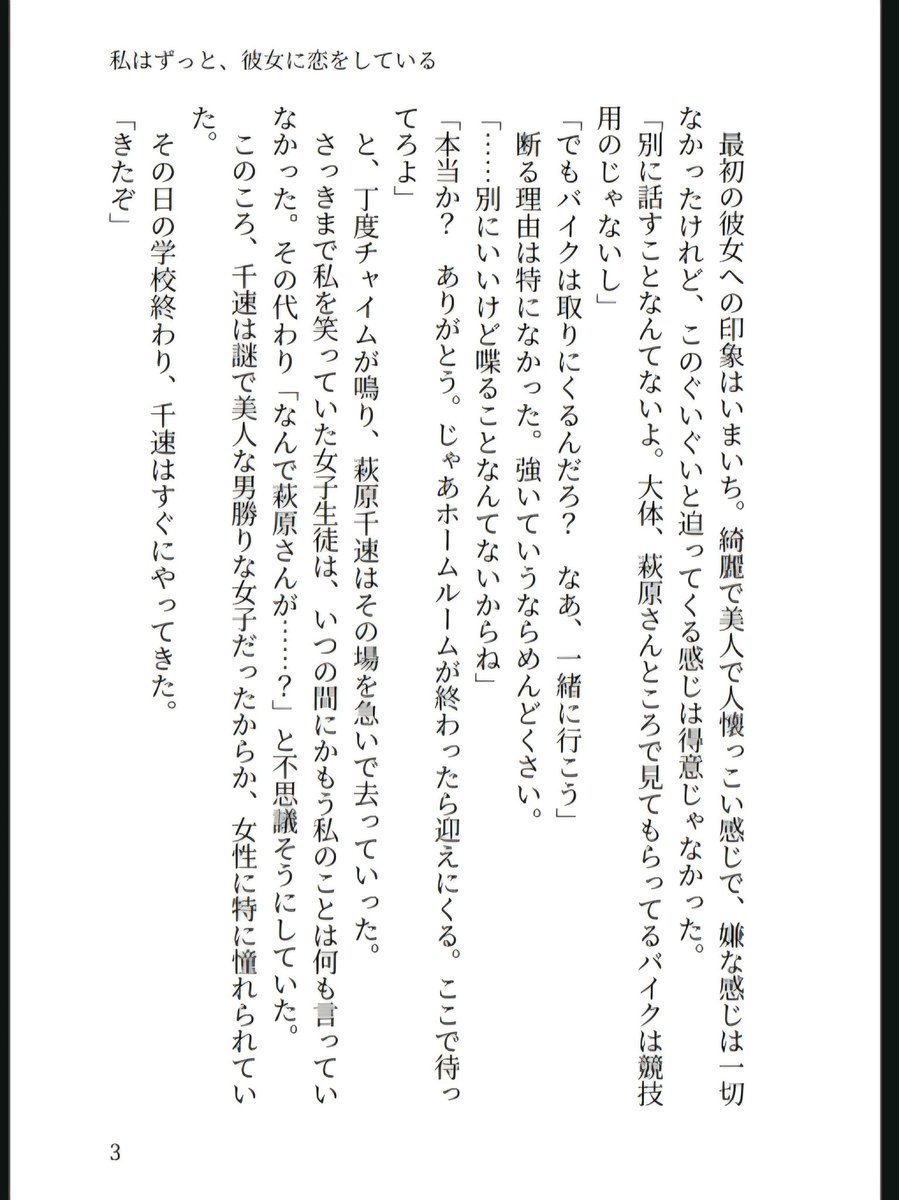 私はずっと、彼女に恋をしている
　最初の彼女への印象はいまいち。綺麗で美人で人懐っこい感じで、嫌な感じは一切
なかったけれど、このぐいぐいと迫ってくる感じは得意じゃなかった。
「別に話すことなんてないよ。大体、萩原さんところで見てもらってるバイクは競技
用のじゃないし」
「でもバイクは取りにくるんだろ？　なあ、一緒に行こう」
　断る理由は特になかった。強いていうならめんどくさい。
「……別にいいけど喋ることなんてないからね」
「本当か？　ありがとう。じゃあホームルームが終わったら迎えにくる。ここで待っ
てろよ」
　と、丁度チャイムが鳴り、萩原千速はその場を急いで去っていった。
　さっきまで私を笑っていた女子生徒は、いつの間にかもう私のことは何も言ってい
なかった。その代わり「なんで萩原さんが……？」と不思議そうにしていた。
　このころ、千速は謎で美人な男勝りな女子だったからか、女性に特に憧れられてい
た。
　その日の学校終わり、千速はすぐにやってきた。
「きたぞ」
3